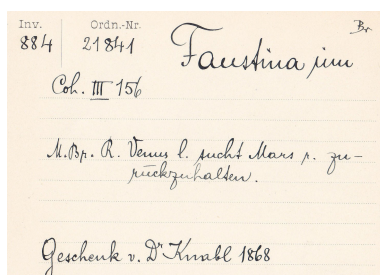 Inv. Ordn.-Nr. Br
884 21841
Faustina iun
Coh. III 156
M.Br. R. Venus l. sucht Mars r. zu-
rückzuhalten.
Geschenk v. Dr Knabl 1868